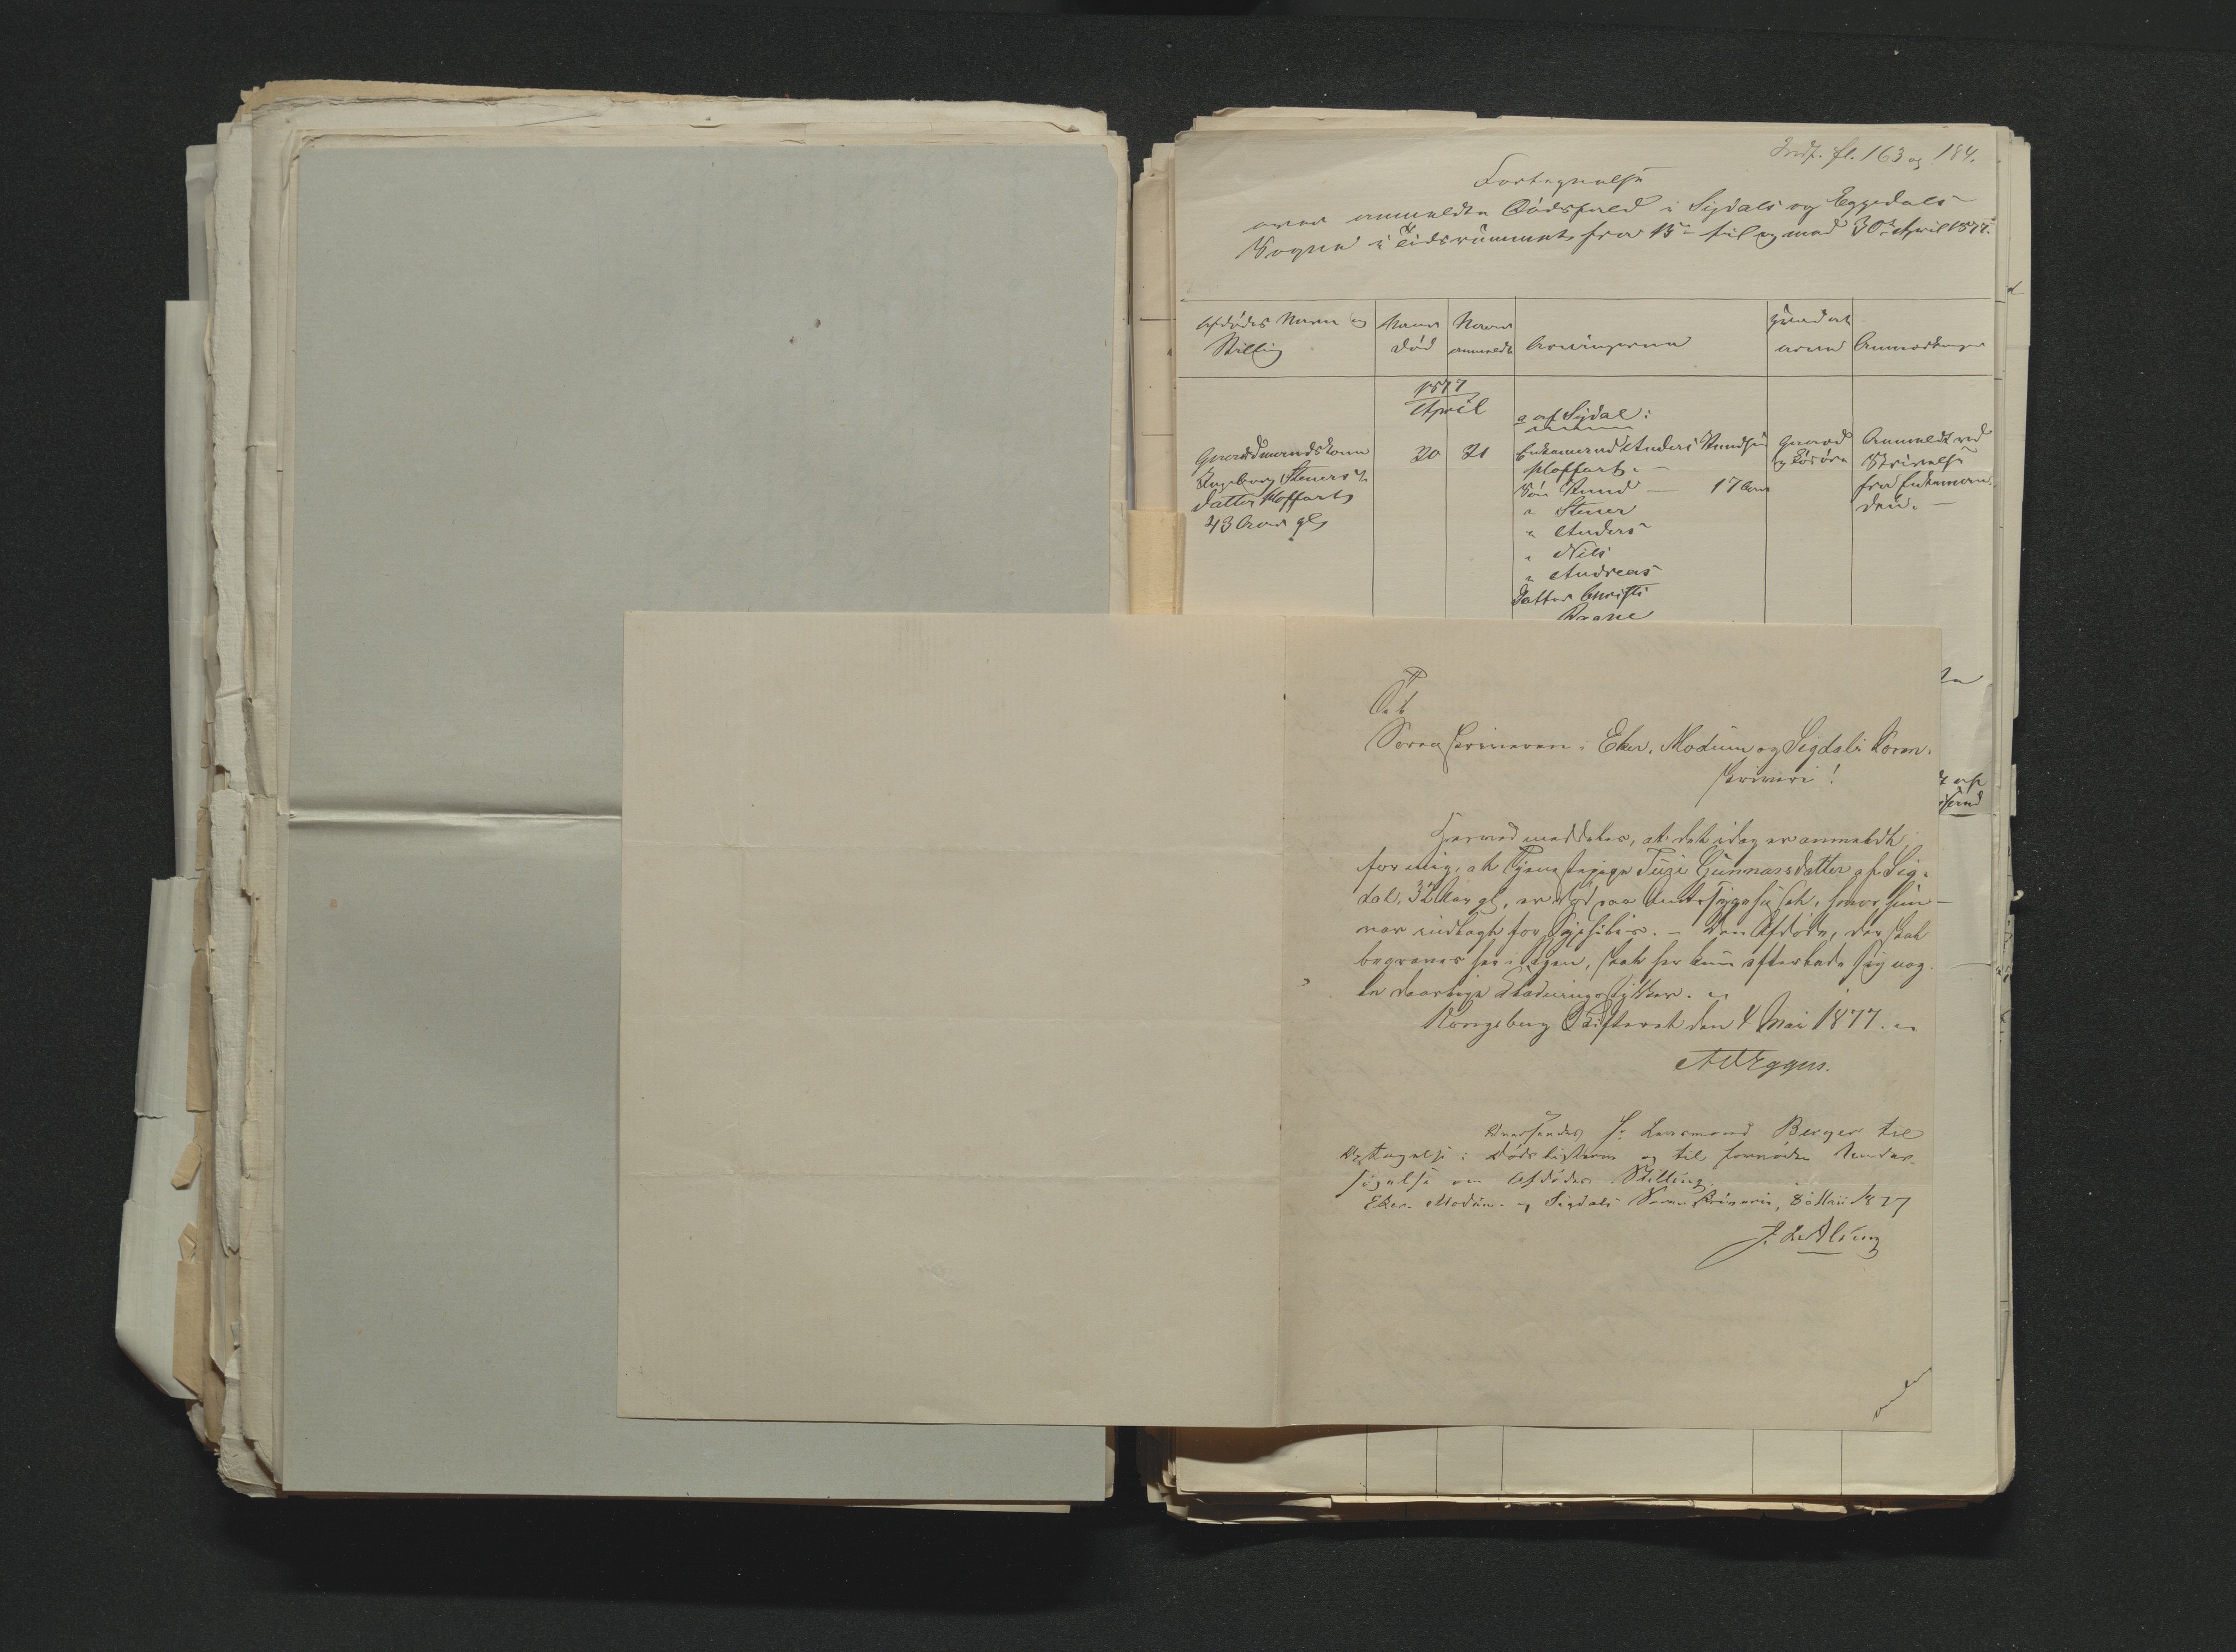 Indf. fl. 163 og 184.
Fortegnelse
over anmeldte Dødsfald i Sigdals og Eggedals
Sogne i Tidsrummet fra 15de til og med 30te April 1877.
Afdødes Navn og Stilling
Naar død
Naar anmeldt
Arvingerne
Hvad at arve
Anmærkninger
1877
April
a af Sigdal:
Gaardmandskone
Ingeborg Steners
datter Kloffart
43 Aar gl
20
21
Enkemand Anders Knudsen
Kloffart. —
Søn Knud — 17 Aar
" Stener
" Anders
" Nils
" Andreas
Datter Christi
Gaard
og Løsøre
Anmeldt ved
Skrivelse
fra Enkeman
den. —
Til
Sorenskriveren i Eker, Modum og Sigdals Soren-
skriveri!
Herved meddeles, at det idag er anmeldt
for mig, at Tjenestepige Turi Gunnarsdatter af Sig-
dal, 32 Aar gl, er død paa Amtssygehuset, hvor hun
var indlagt for Syphilis. – Den Afdøde, der skal
begraves her i Byen, skal her kun efterlade sig nog-
le daarlige Klædningsstykker.
Kongsberg Skifteret den 4 Mai 1877.
Eggers.
Oversendes Hr. Lensmand Berger til
Optagelse i Dødslisterne og til fornøden Under-
søgelse om Afdødes Stilling.
Eker, Modum og Sigdals Sorenskriveri, 8 Mai 1877